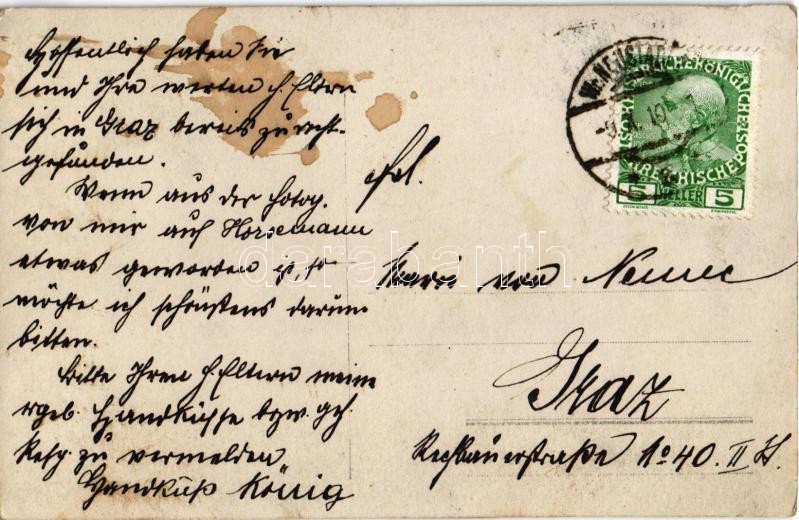 Hoffentlich haben Sie
und Ihre werten H. Eltern
sich in Graz bereits zurecht-
gefunden.
Wenn aus der Fotog.
von mir auf Horsemann
etwas geworden ist, so
möchte ich schönstens darum
bitten.
Bitte Ihren H. Eltern meine
ergeb. Handküsse bzw. geh.
zu vermelden
Handkuß König
Frl.
von Nemec
Graz
Rechbauerstraße No 40. II
Wr. NEUSTADT
KAISERLICHE KÖNIGLICHE ÖSTERREICHISCHE POST
5 HELLER 5
darabanth